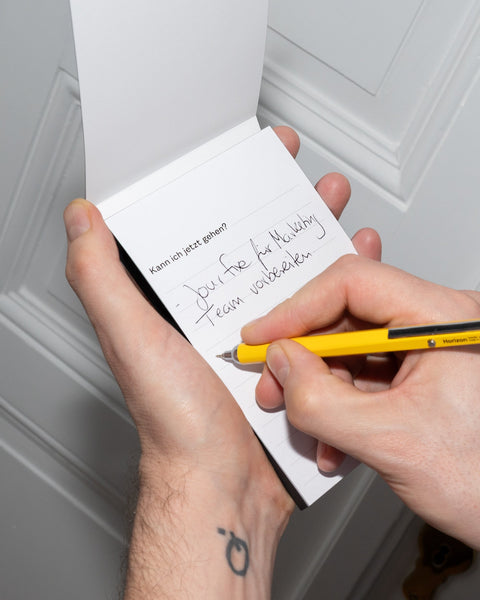 Kann ich jetzt gehen?
- Jour Fixe für Marketing
Team vorbereiten
Horizon